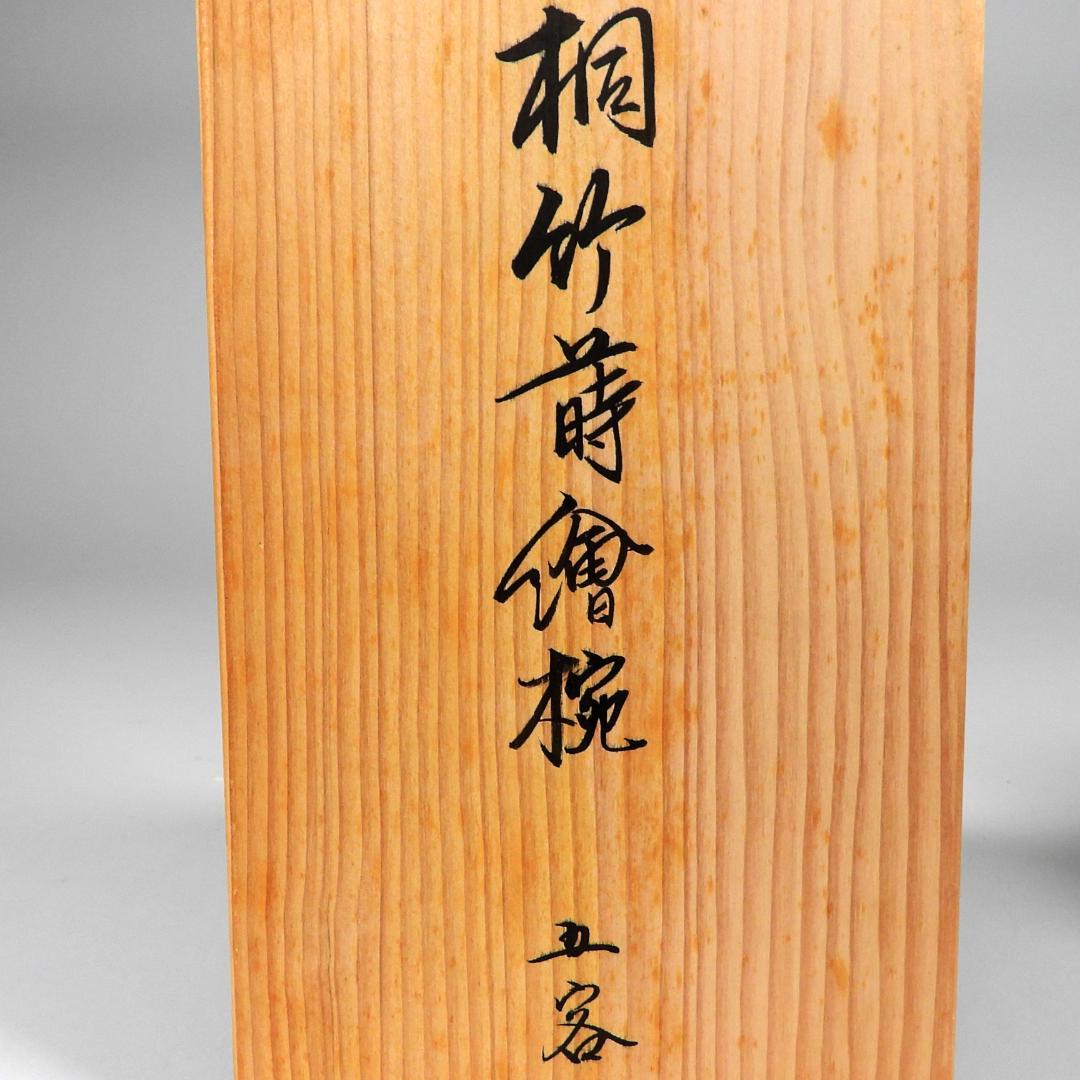 桐竹蒔繪椀 五客